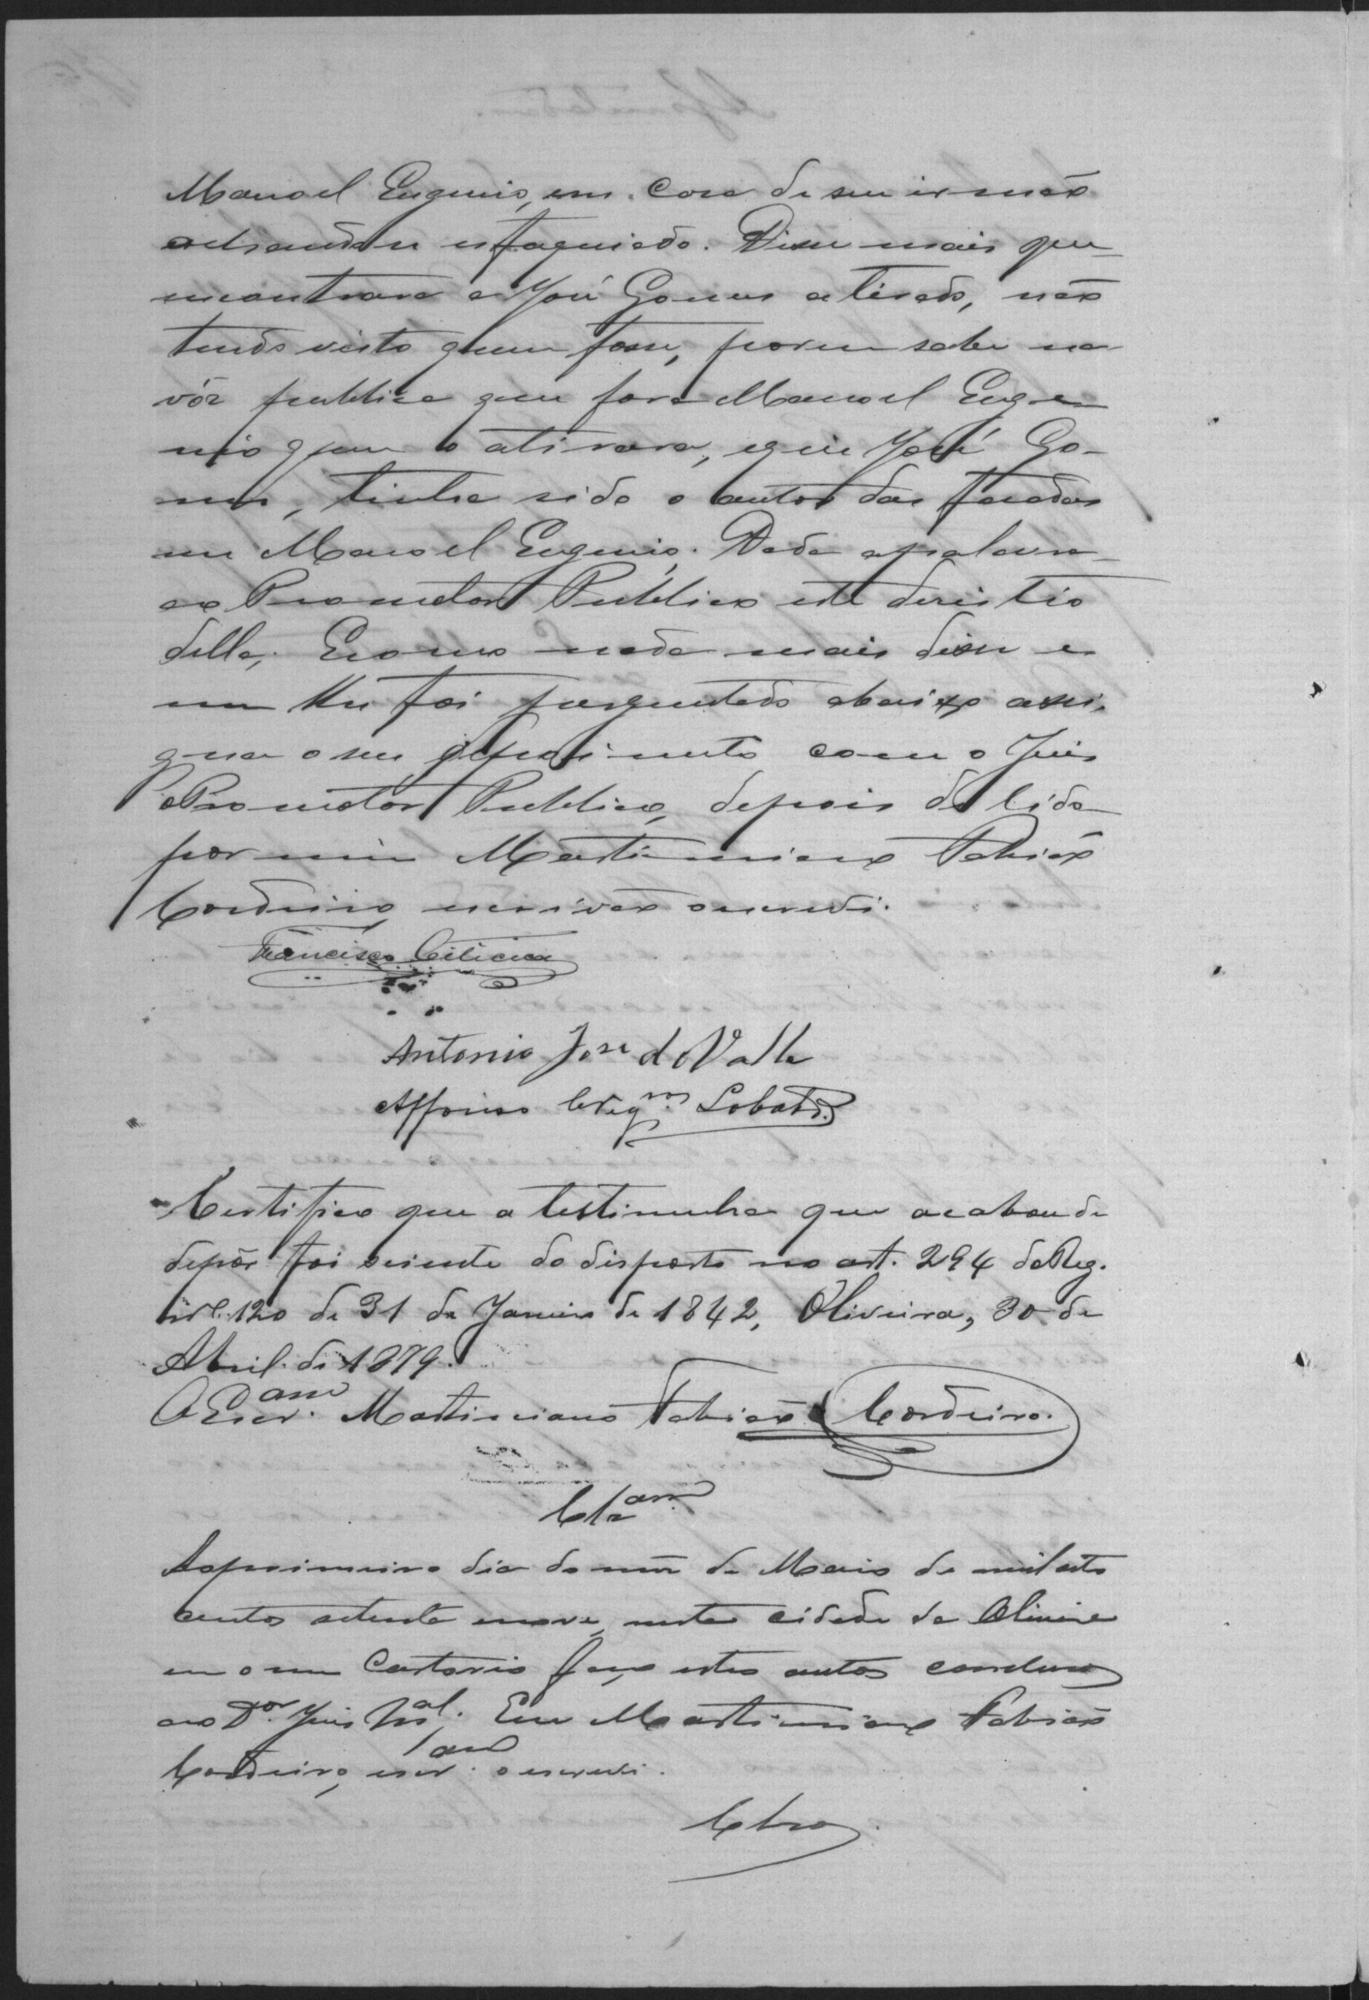 Manoel Eugenio, em casa de seu irmão
achando-se esfaquiado. Disse mais que
encontrara a José Gomes atirado, não
tendo visto quem fosse, porem sabe na
vóz publica que fora Manoel Euge-
nio quem o atirara, e que José Go-
mes, tinha sido o autor das facadas
em Manoel Eugenio. Dada a palavra
ao Promotor Publico este desistio
della. E como nada mais disse e
nem lhe foi perguntado abaixo assi-
gna o seu depoimento com o Juis
e Promotor Publico, depois de lido
por mim Martiniano Fabião
Cordeiro, escrivão o escrevi.
Francisco
Antonio José do Valle
Affonso Lobato
Certifico que a testimunha que acabou de
depôr foi sciente do disposto no art. 294 do Reg.
nº 120 de 31 de Janeiro de 1842, Oliveira, 30 de
Abril de 1879.
O Escr.am Martiniano Fabião Cordeiro.
Clsam
Ao primeiro dia do mez de Maio de mil oito
centos setenta e nove, nesta cidade da Oliveira
em o meu Cartorio faço estes autos conclusos
ao Dor. Juis Mal. Eu Martiniano Fabião
Cordeiro, escr.am o escrevi.
Clsos